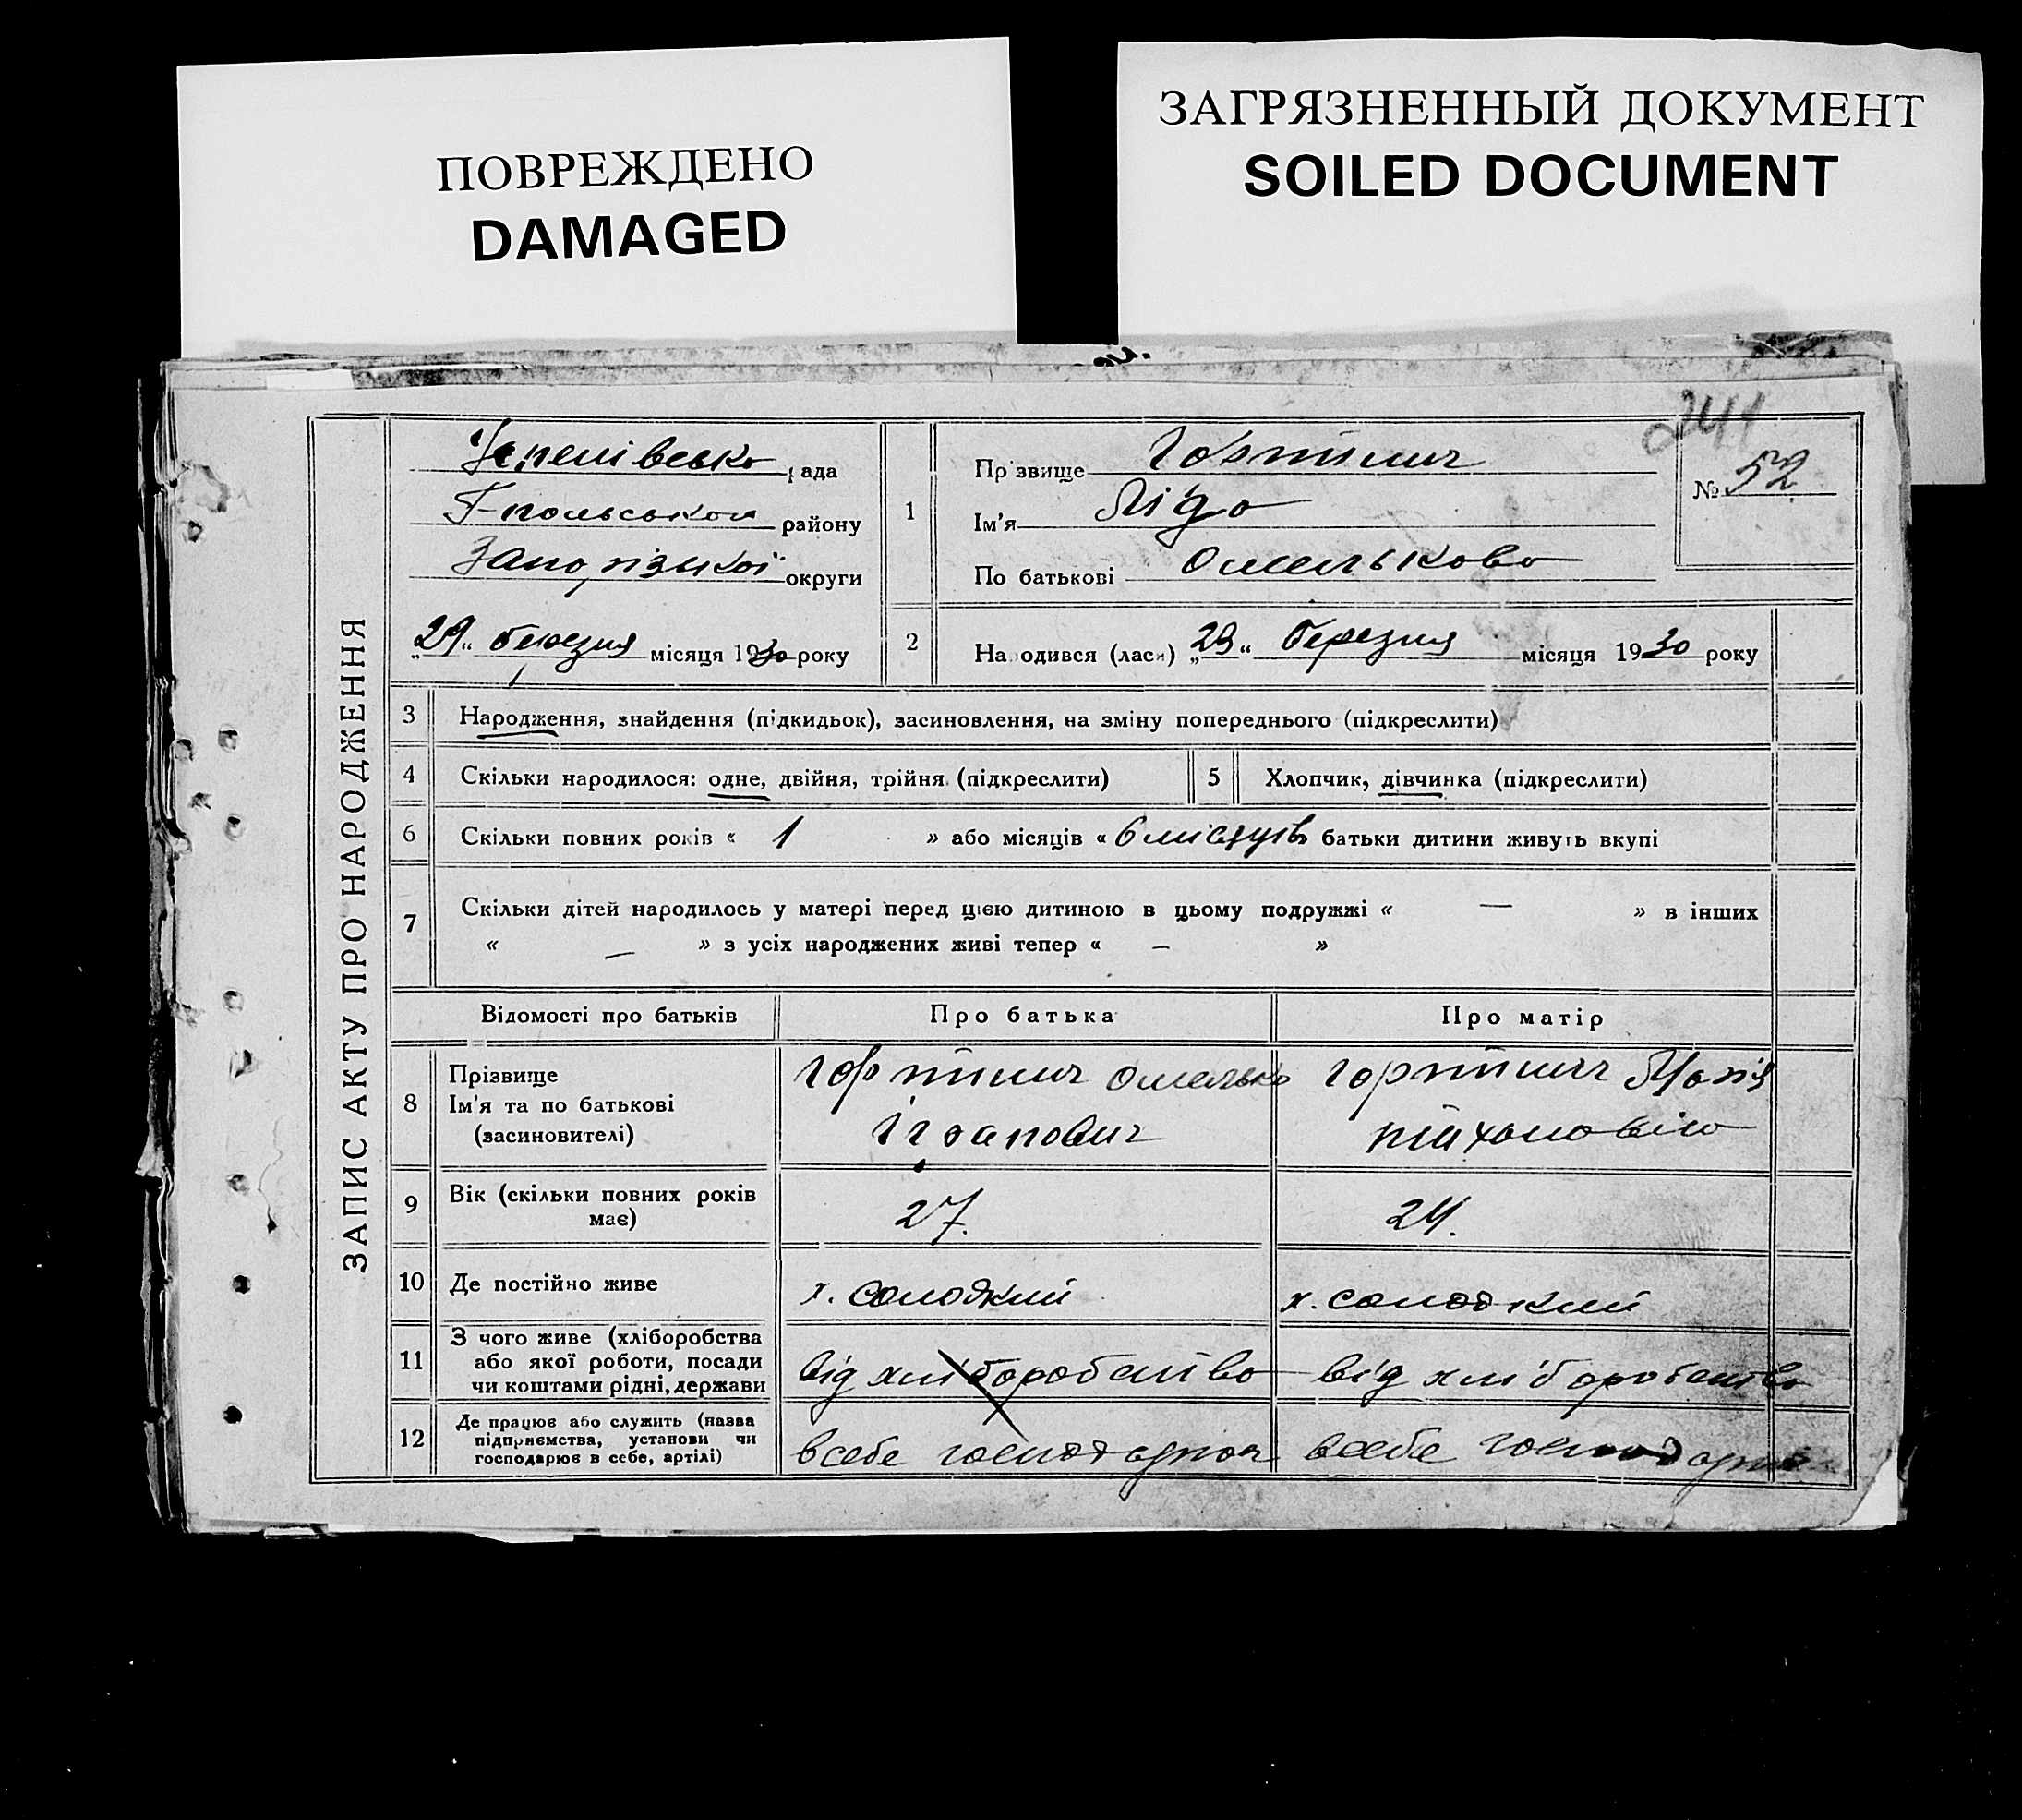 ПОВРЕЖДЕНО
DAMAGED
ЗАГРЯЗНЕННЫЙ ДОКУМЕНТ
SOILED DOCUMENT
241
ЗАПИС АКТУ ПРО НАРОДЖЕННЯ
Успенівсько рада
Г-польського району
Запорізької округи
„29“ березня місяця 1930 року
1
Прізвище
Ім'я Ліда
По батькові Омелькова
№ 52
2
Народився (лася) „23“ березня місяця 1930 року
3 Народження, знайдення (підкидьок), засиновлення, на зміну попереднього (підкреслити)
4 Скільки народилося: одне, двійня, трійня (підкреслити)
5 Хлопчик, дівчинка (підкреслити)
6 Скільки повних років « 1 » або місяців « 6 місяців батьки дитини живуть вкупі
7 Скільки дітей народилось у матері перед цією дитиною в цьому подружжі « — » в інших
« — » з усіх народжених живі тепер « — »
Відомості про батьків Про батька Про матір
8 Прізвище
Ім'я та по батькові
(засиновителі)
Омелько
Марія
9 Вік (скільки повних років
має)
27.
24.
10 Де постійно живе х. Солодкий х. Солодкий
11 З чого живе (хліборобства
або якої роботи, посади
чи коштами рідні, держави
від хліборобства від хліборобства
12 Де працює або служить (назва
підприємства, установи чи
господарює в себе, артілі)
в себе в себе